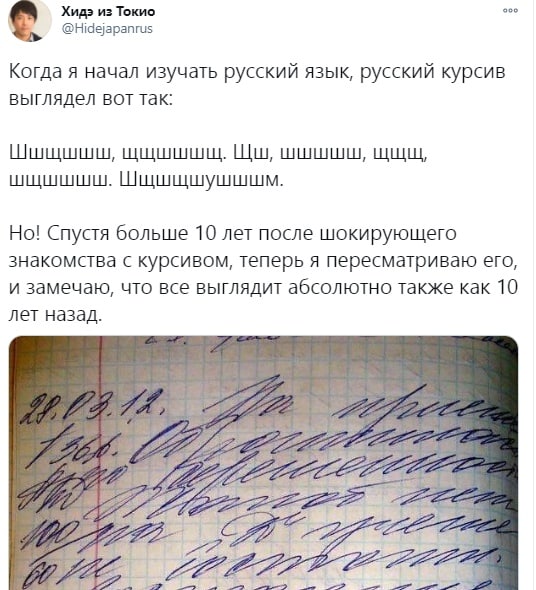 Хидэ из Токио
@Hidejapanrus
Когда я начал изучать русский язык, русский курсив
выглядел вот так:
Шшщшшш, щщшшшщ. Щш, шшшшш, щщщ,
шщшшшш. Шщшщшушшшм.
Но! Спустя больше 10 лет после шокирующего
знакомства с курсивом, теперь я пересматриваю его,
и замечаю, что все выглядит абсолютно также как 10
лет назад.
28.03.12. На приеме
беременности
нет
100 на приеме
60 не